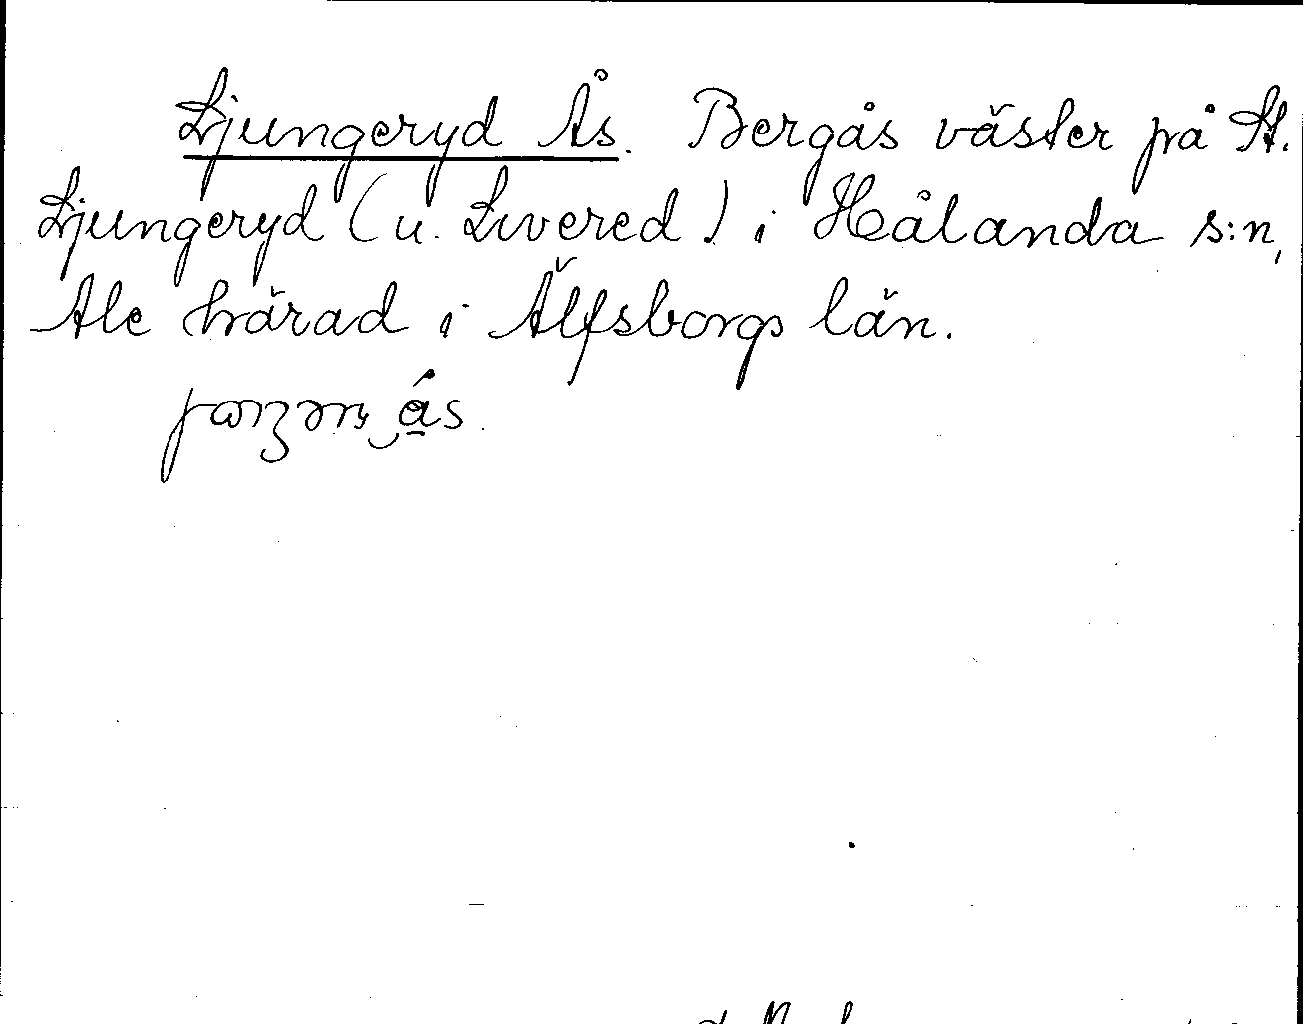 Ljungeryd Ås. Bergås väster på St.
Ljungeryd (u. Livered) i Hålanda s:n,
Ale härad i Älfsborgs län.